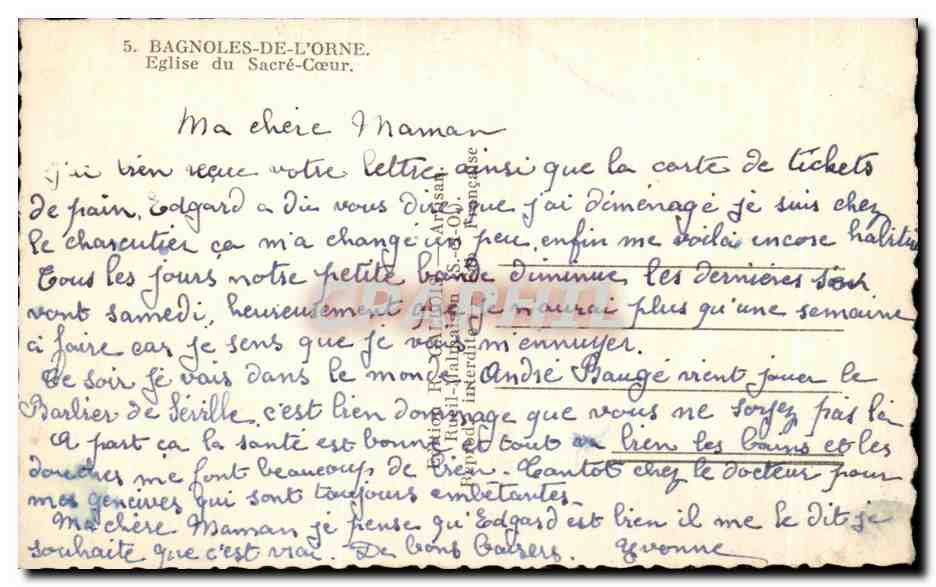 5. BAGNOLES-DE-L'ORNE.
Eglise du Sacré-Cœur.
Ma chère Maman
j'ai bien reçue votre lettre ainsi que la carte de tickets
de pain, Edgard a du vous dire que j'ai déménagé je suis chez
le charcutier ça m'a changé un peu, enfin me voila encore habitué
Tous les jours notre petite bande diminue les dernières sont
vont samedi, heureusement que je n'aurai plus qu'une semaine
a faire car je sens que je vais m'ennuyer.
Ce soir je vais dans le monde André Baugé vient jouer le
Barbier de Séville, c'est bien dommage que vous ne soyez pas là
A part ça la santé est bonne et tout va bien les bains et les
douches me font beaucoup de bien. Tantot chez le docteur pour
mes gencives qui sont toujours embêtantes.
Ma chère Maman je pense qu'Edgard est bien il me le dit je
souhaite que c'est vrai. De bons baisers. Yvonne
Edition R. — Artisan
Rueil-Malmaison (S.-&-O.)
Reprod. interdite Française
CPARAMA